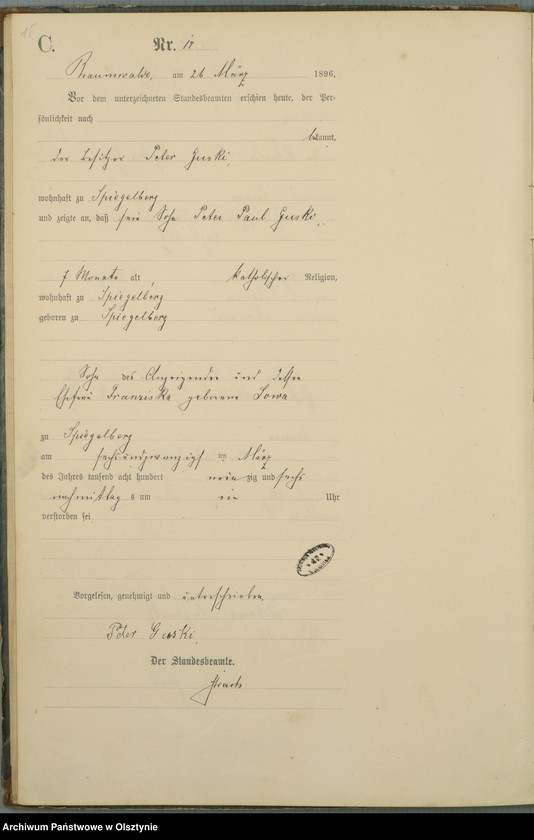 C. Nr. 17
Braunswalde, am 26. März 1896.
Vor dem unterzeichneten Standesbeamten erschien heute, der Per-
sönlichkeit nach
bekannt,
der Besitzer Peter Guski,
wohnhaft zu Spiegelberg
und zeigte an, daß sein Sohn Peter Paul Guski,
7 Monate alt, katholischer Religion,
wohnhaft zu Spiegelberg
geboren zu Spiegelberg
Sohn des Anzeigenden und dessen
Ehefrau Franziska geborene Sowa
zu Spiegelberg
am sechsundzwanzigsten März
des Jahres tausend acht hundert neunzig und sechs
nachmittags um ein Uhr
verstorben sei.
Vorgelesen, genehmigt und unterschrieben.
Peter Guski.
Der Standesbeamte.
Archiwum Państwowe w Olsztynie